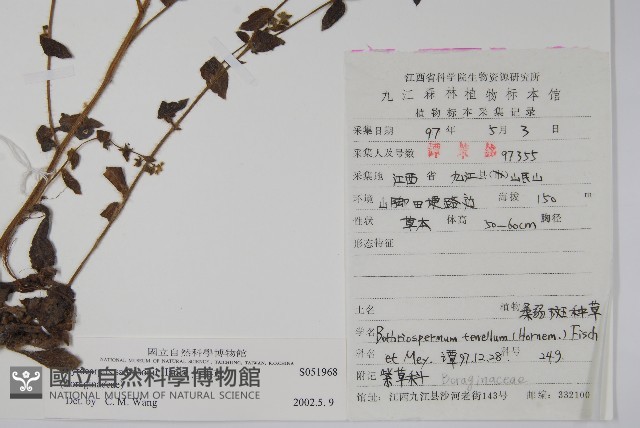 江西省科学院生物资源研究所
九江森林植物标本馆
植物标本采集记录
采集日期 97年 5月 3日
采集人及号数 97355
采集地 江西省 九江县 山
环境 山脚田埂路边 海拔 150 m
性状 草本 体高 50—60cm 胸径
形态特征
土名 植物 柔弱斑种草
学名 Bothriospermum tenellum (Hornem.) Fisch
et Mey. 谭97.12.28 科号 249
附记 紫草科 Boraginaceae
馆址：江西九江县沙河老街143号 邮编：332100
國立自然科學博物館
NATIONAL MUSEUM OF NATURAL SCIENCE, TAICHUNG, TAIWAN, R.O.CHINA
S051968
Det. by C. M. Wang 2002.5.9
國立自然科學博物館
NATIONAL MUSEUM OF NATURAL SCIENCE